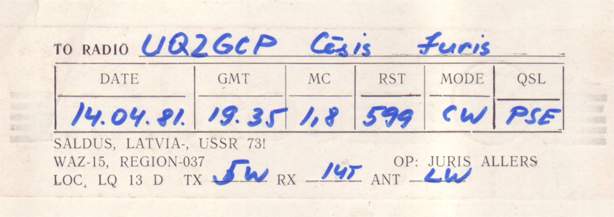 TO RADIO UQ2GCP Cēsis Juris
DATE GMT MC RST MODE QSL
14.04.81. 19.35 1,8 599 CW PSE
SALDUS, LATVIA-, USSR 73!
WAZ-15, REGION-037 OP: JURIS ALLERS
LOC, LQ 13 D TX 5W RX 14T ANT LW